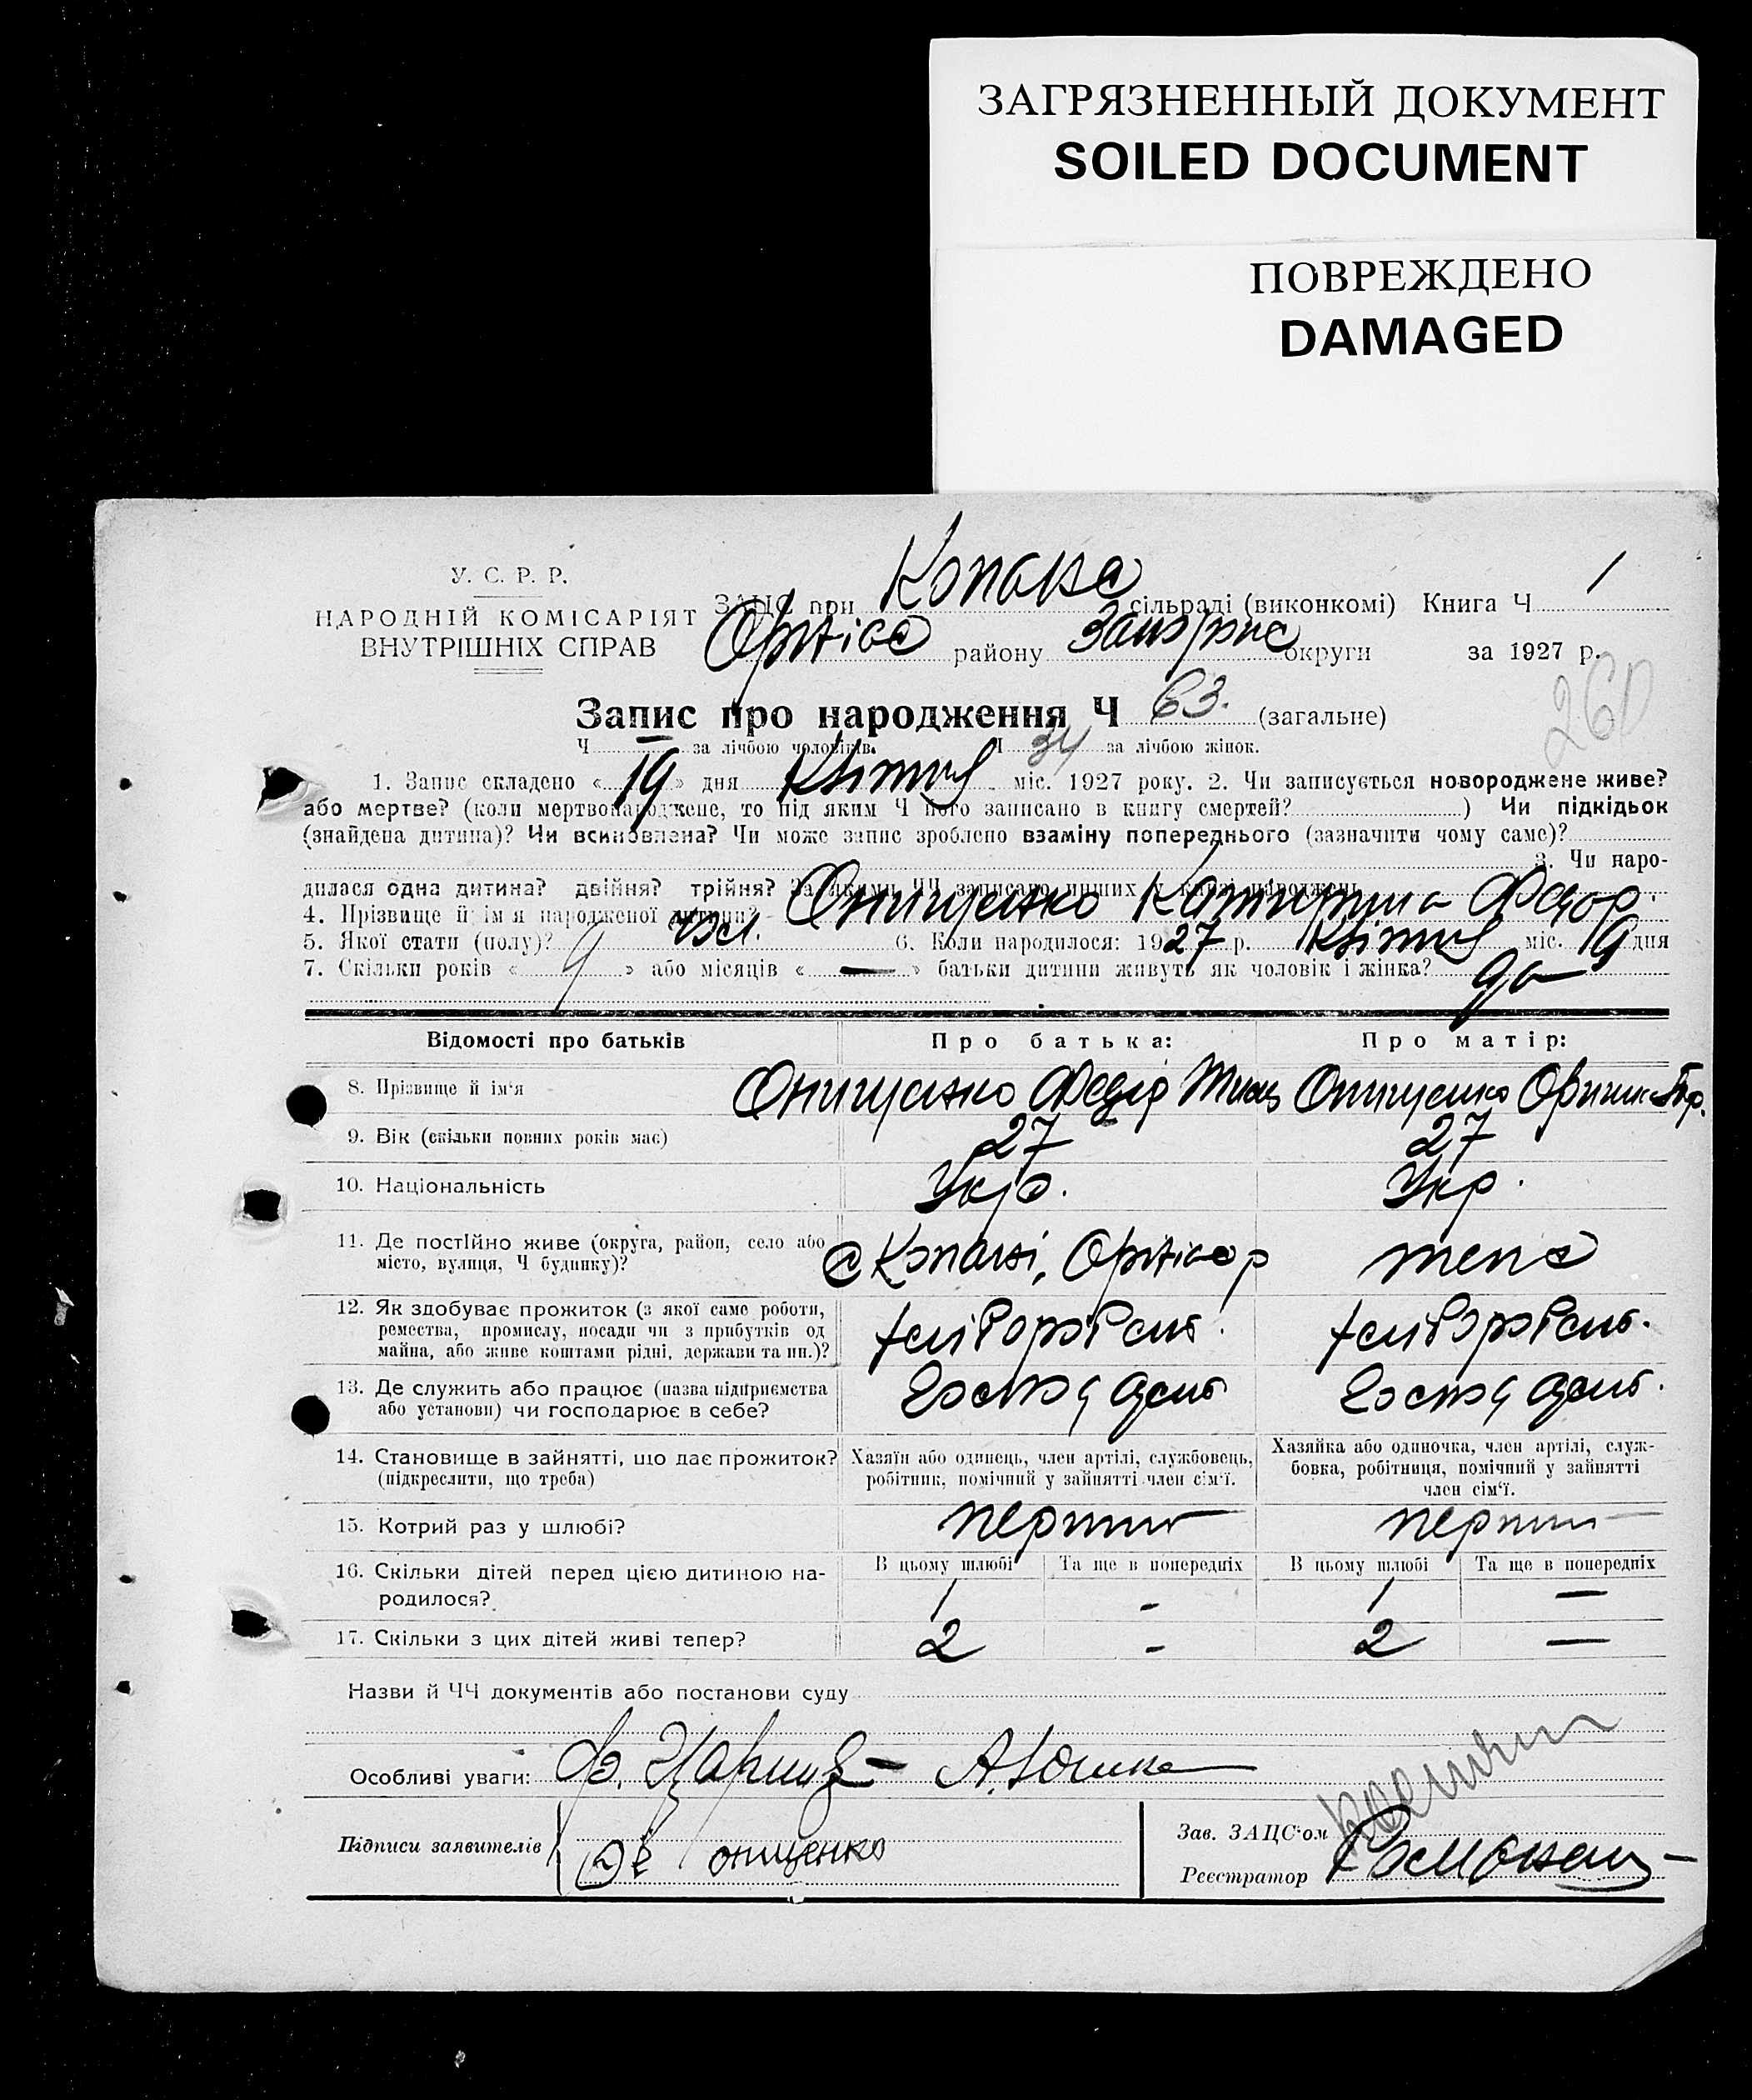 ЗАГРЯЗНЕННЫЙ ДОКУМЕНТ
SOILED DOCUMENT
ПОВРЕЖДЕНО
DAMAGED
У. С. Р. Р.
НАРОДНІЙ КОМІСАРІЯТ
ВНУТРІШНІХ СПРАВ
ЗАЦС при Копана сільраді (виконкомі) Книга Ч 1
району округи за 1927 р.
260
Запис про народження Ч 63. (загальне)
Ч — за лічбою чоловіків. Ч 34 за лічбою жінок.
1. Запис складено « 19 » дня Квітня міс. 1927 року. 2. Чи записується новороджене живе?
або мертве? (коли мертвонароджене, то під яким Ч його записано в книгу смертей? ) Чи підкідьок
(знайдена дитина)? Чи всиновлена? Чи може запис зроблено взаміну попереднього (зазначити чому саме)?
3. Чи наро-
дилася одна дитина? двійня? трійня? За якими ЧЧ записано инших у книзі народжень
4. Прізвище й ім'я народженої дитини? Онищенко Катирина Федор.
5. Якої стати (полу)? жіл. 6. Коли народилося: 1927 р. Квітня міс. 19 дня
7. Скільки років « 9 » або місяців « — » батьки дитини живуть як чоловік і жінка? да
Відомості про батьків Про батька: Про матір:
8. Прізвище й ім'я Онищенко Федір Онищенко
9. Вік (скільки повних років має) 27 27
10. Національність Укр. Укр.
11. Де постійно живе (округа, район, село або
місто, вулиця, Ч будинку)? с Копані, теж
12. Як здобуває прожиток (з якої саме роботи,
ремества, промислу, посади чи з прибутків од
майна, або живе коштами рідні, держави та ин.)? хліборобст. хліборобст.
13. Де служить або працює (назва підприємства
або установи) чи господарює в себе?
14. Становище в зайнятті, що дає прожиток?
(підкреслити, що треба)
Хазяїн або одинець, член артілі, службовець,
робітник, помічний у зайнятті член сім'ї.
Хазяйка або одиночка, член артілі, служ-
бовка, робітниця, помічний у зайнятті
член сім'ї.
15. Котрий раз у шлюбі? перший перший
16. Скільки дітей перед цією дитиною на-
родилося?
В цьому шлюбі Та ще в попередніх В цьому шлюбі Та ще в попередніх
1 - 1 —
17. Скільки з цих дітей живі тепер? 2 - 2 —
Назви й ЧЧ документів або постанови суду
Особливі уваги:
Підписи заявителів онищенко
Зав. ЗАЦС'ом
Реєстратор